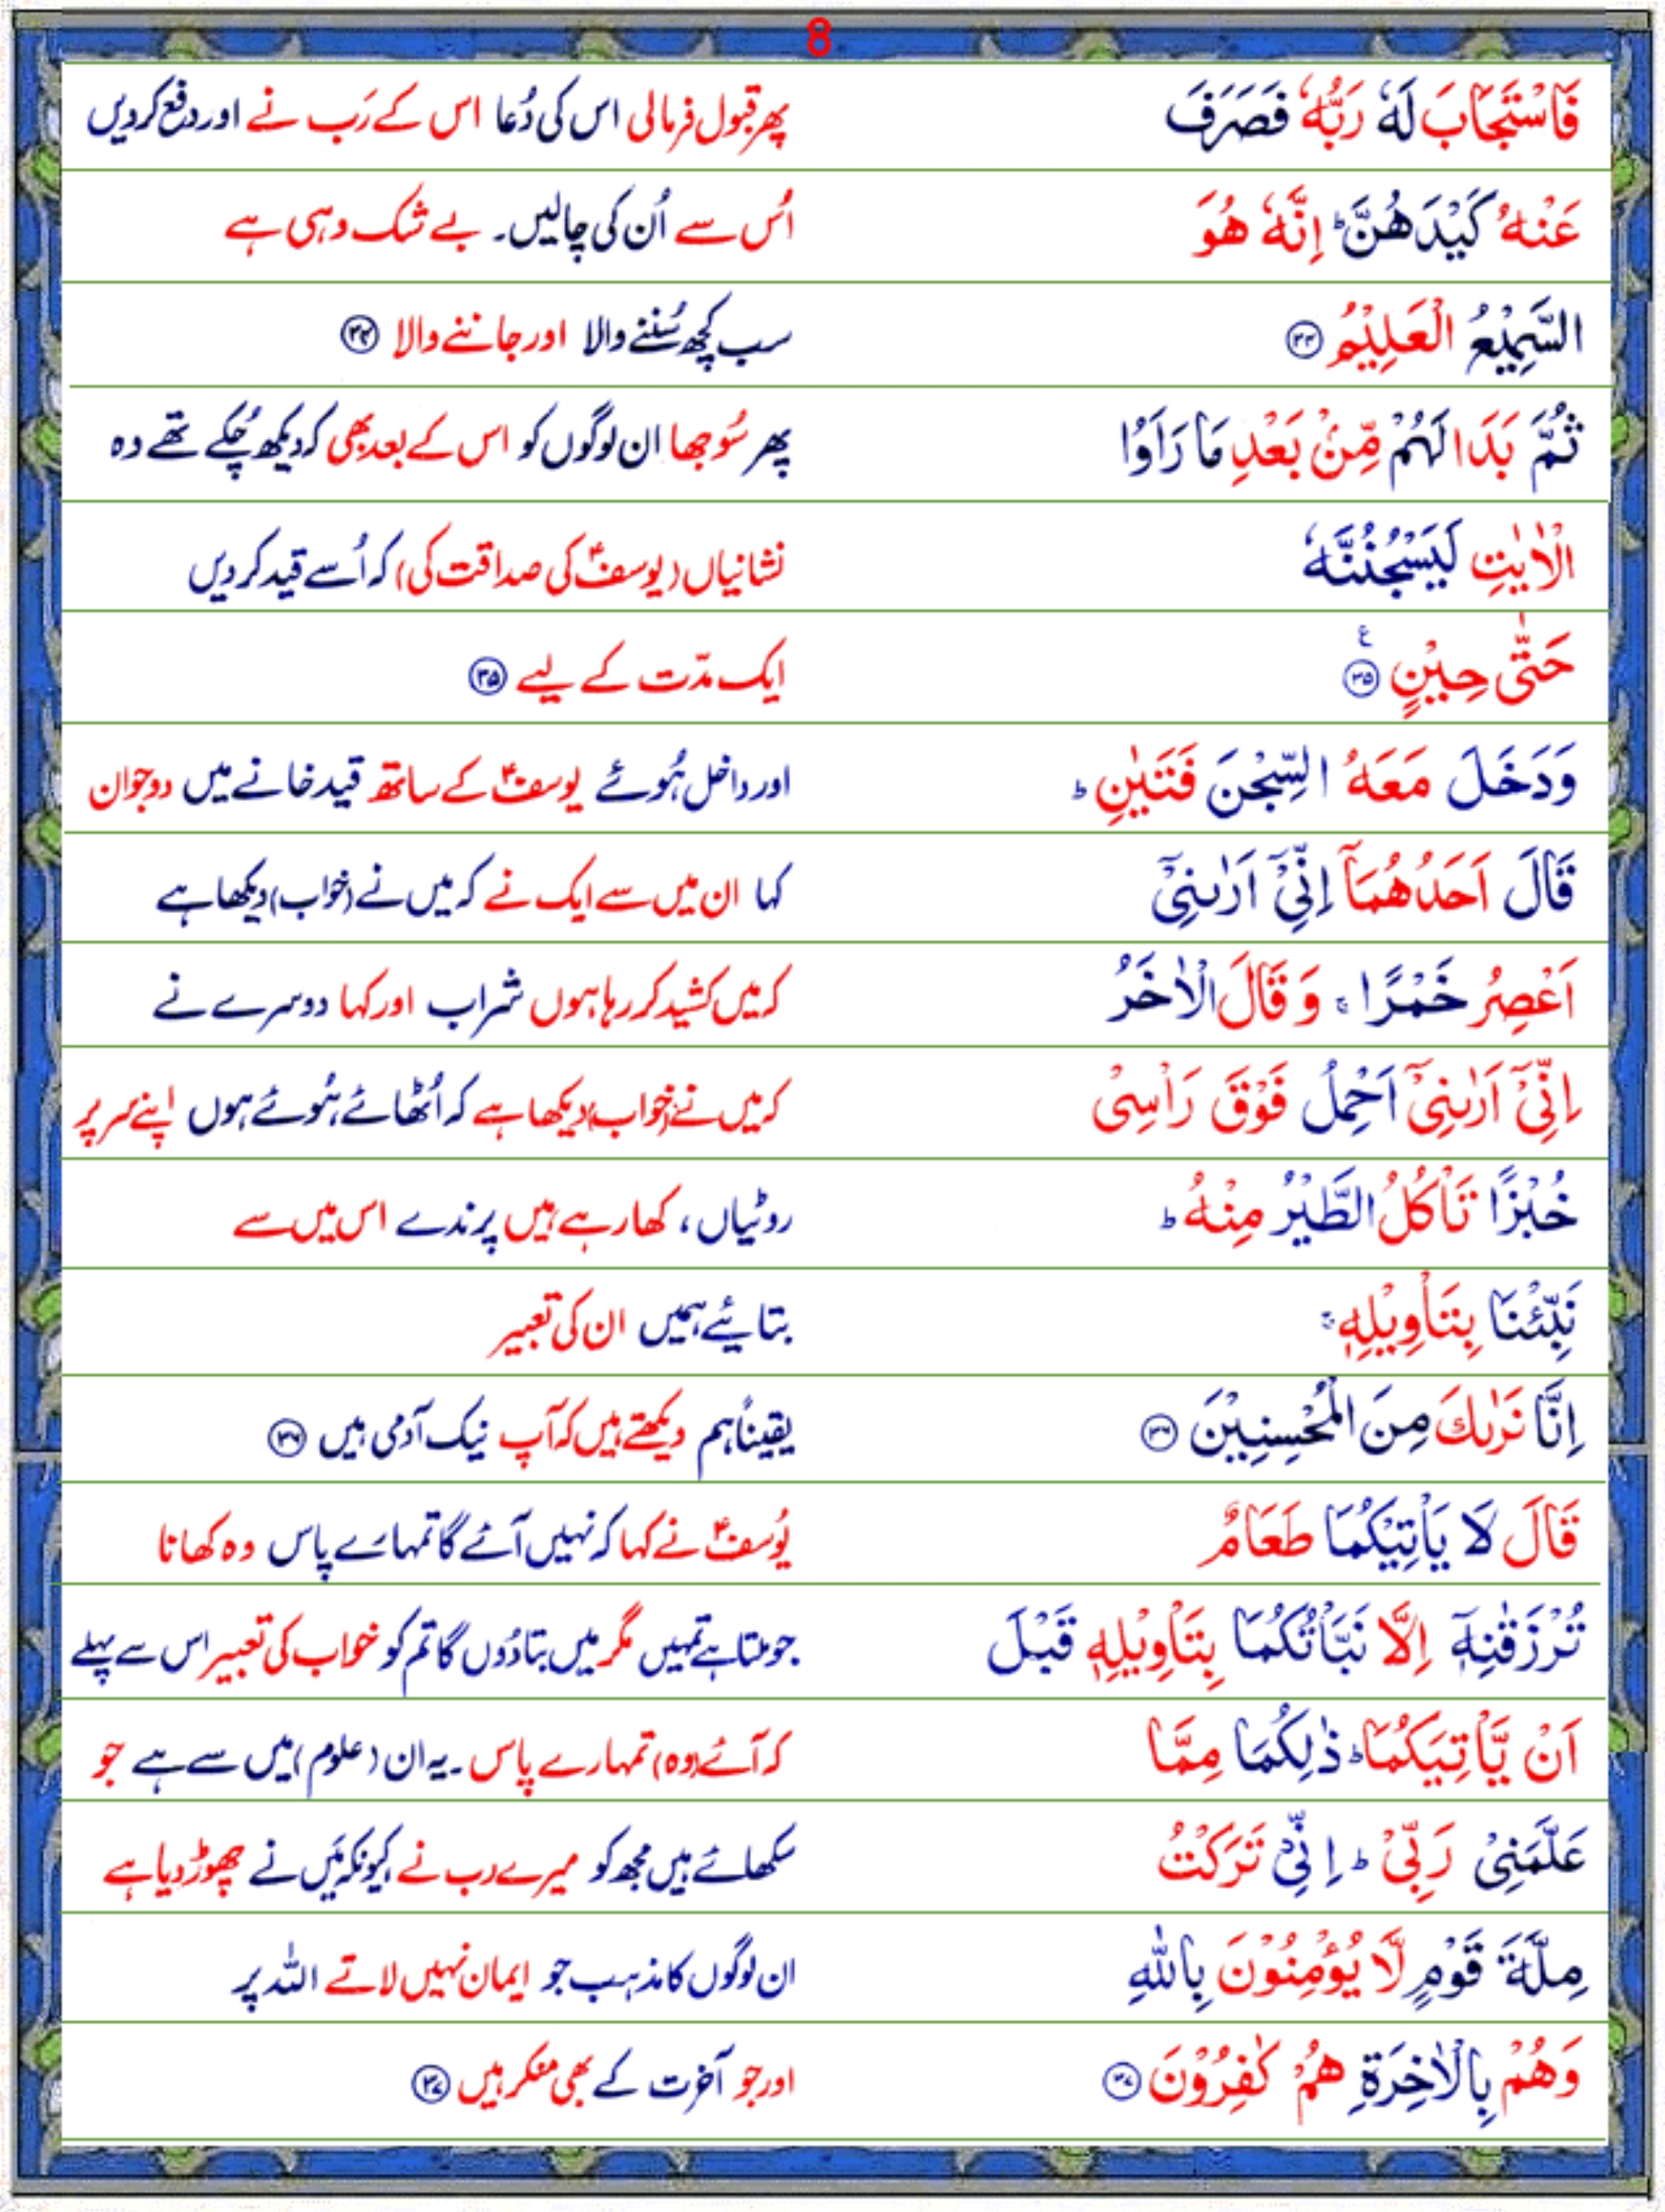 8
فَاسْتَجَابَ لَهٗ رَبُّهٗ فَصَرَفَ پھر قبول فرمالی اس کی دُعا اس کے رَب نے اور دفع کردیں
عَنْهُ كَیْدَهُنَّ ؕ اِنَّهٗ هُوَ اُس سے اُن کی چالیں۔ بے شک وہی ہے
السَّمِیْعُ الْعَلِیْمُ ۳۴ سب کچھ سُننے والا اور جاننے والا ۳۴
ثُمَّ بَدَا لَهُمْ مِّنْۢ بَعْدِ مَا رَاَوُا پھر سُوجھا ان لوگوں کو اس کے بعد بھی کہ دیکھ چُکے تھے وہ
الْاٰیٰتِ لَیَسْجُنُنَّهٗ نشانیاں (یوسفؑ کی صداقت کی) کہ اُسے قید کر دیں
حَتّٰی حِیْنٍ ۳۵ ع ایک مدّت کے لیے ۳۵
وَدَخَلَ مَعَهُ السِّجْنَ فَتَیٰنِ ؕ اور داخل ہُوئے یوسفؑ کے ساتھ قید خانے میں دو جوان
قَالَ اَحَدُهُمَاۤ اِنِّیْۤ اَرٰىنِیْۤ کہا ان میں سے ایک نے کہ میں نے (خواب) دیکھا ہے
اَعْصِرُ خَمْرًا ۚ وَ قَالَ الْاٰخَرُ کہ میں کشید کر رہا ہوں شراب اور کہا دوسرے نے
اِنِّیْۤ اَرٰىنِیْۤ اَحْمِلُ فَوْقَ رَاْسِیْ کہ میں نے (خواب) دیکھا ہے کہ اُٹھائے ہُوئے ہوں اپنے سر پر
خُبْزًا تَاْكُلُ الطَّیْرُ مِنْهُ ؕ روٹیاں، کھا رہے ہیں پرندے اس میں سے
نَبِّئْنَا بِتَاْوِیْلِهٖ ۚ بتائیے ہمیں ان کی تعبیر
اِنَّا نَرٰىكَ مِنَ الْمُحْسِنِیْنَ ۳۶ یقیناً ہم دیکھتے ہیں کہ آپ نیک آدمی ہیں ۳۶
قَالَ لَا یَاْتِیْكُمَا طَعَامٌ یُوسفؑ نے کہا کہ نہیں آئے گا تمہارے پاس وہ کھانا
تُرْزَقٰنِهٖۤ اِلَّا نَبَّاْتُكُمَا بِتَاْوِیْلِهٖ قَبْلَ جو ملتا ہے تمہیں مگر میں بتا دُوں گا تم کو خواب کی تعبیر اس سے پہلے
اَنْ یَّاْتِیَكُمَا ؕ ذٰلِكُمَا مِمَّا کہ آئے (وہ) تمہارے پاس۔ یہ ان (علوم) میں سے ہے جو
عَلَّمَنِیْ رَبِّیْ ؕ اِنِّیْ تَرَكْتُ سکھائے ہیں مجھ کو میرے رب نے کیونکہ میں نے چھوڑ دیا ہے
مِلَّةَ قَوْمٍ لَّا یُؤْمِنُوْنَ بِاللّٰهِ ان لوگوں کا مذہب جو ایمان نہیں لاتے اللہ پر
وَهُمْ بِالْاٰخِرَةِ هُمْ كٰفِرُوْنَ ۳۷ اور جو آخرت کے بھی منکر ہیں ۳۷